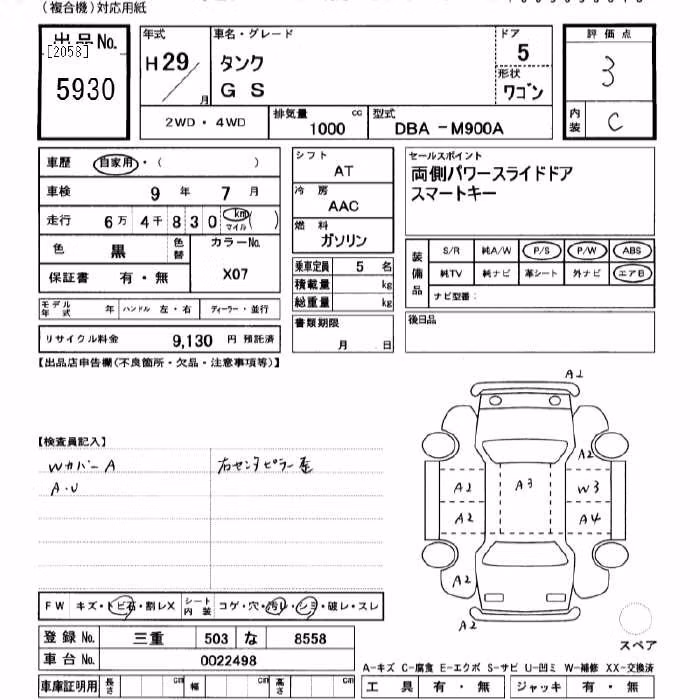 (複合機)対応用紙
出品No.
[2058]
5930
年式
H29/月
車名・グレード
タンク
GS
ドア
5
形状
ワゴン
評価点
3
内装
C
2WD・4WD
排気量 1000 cc
型式 DBA-M900A
車歴 自家用・( )
車検 9年 7月
走行 6万4千830 km マイル ( )
色 黒 色替
カラーNo.
X07
保証書 有・無
シフト
AT
冷房
AAC
燃料
ガソリン
乗車定員 5 名
積載量 kg
総重量 kg
書類期限
月 日
セールスポイント
両側パワースライドドア
スマートキー
装備品
S/R 純A/W P/S P/W ABS
純TV 純ナビ 革シート 外ナビ エアB
ナビ型番:
後日品
モデル年式 年 ハンドル 左・右 ディーラー・並行
リサイクル料金 9,130 円 預託済
【出品店申告欄(不良箇所・欠品・注意事項等)】
【検査員記入】
Wカバー A
A・U
右センタピラー
A2
A2
A2 A3 W3
A2 A4
A2
A2
A2
FW キズ・トビ石・割レX
シート内装 コゲ・穴・汚レ・シミ・破レ・スレ
登録No. 三重 503 な 8558
車台No. 0022498
車庫証明用 長さ cm 幅 cm 高さ cm
スペア
A-キズ C-腐食 E-エクボ S-サビ U-凹ミ W-補修 XX-交換済
工具 有・無 ジャッキ 有・無